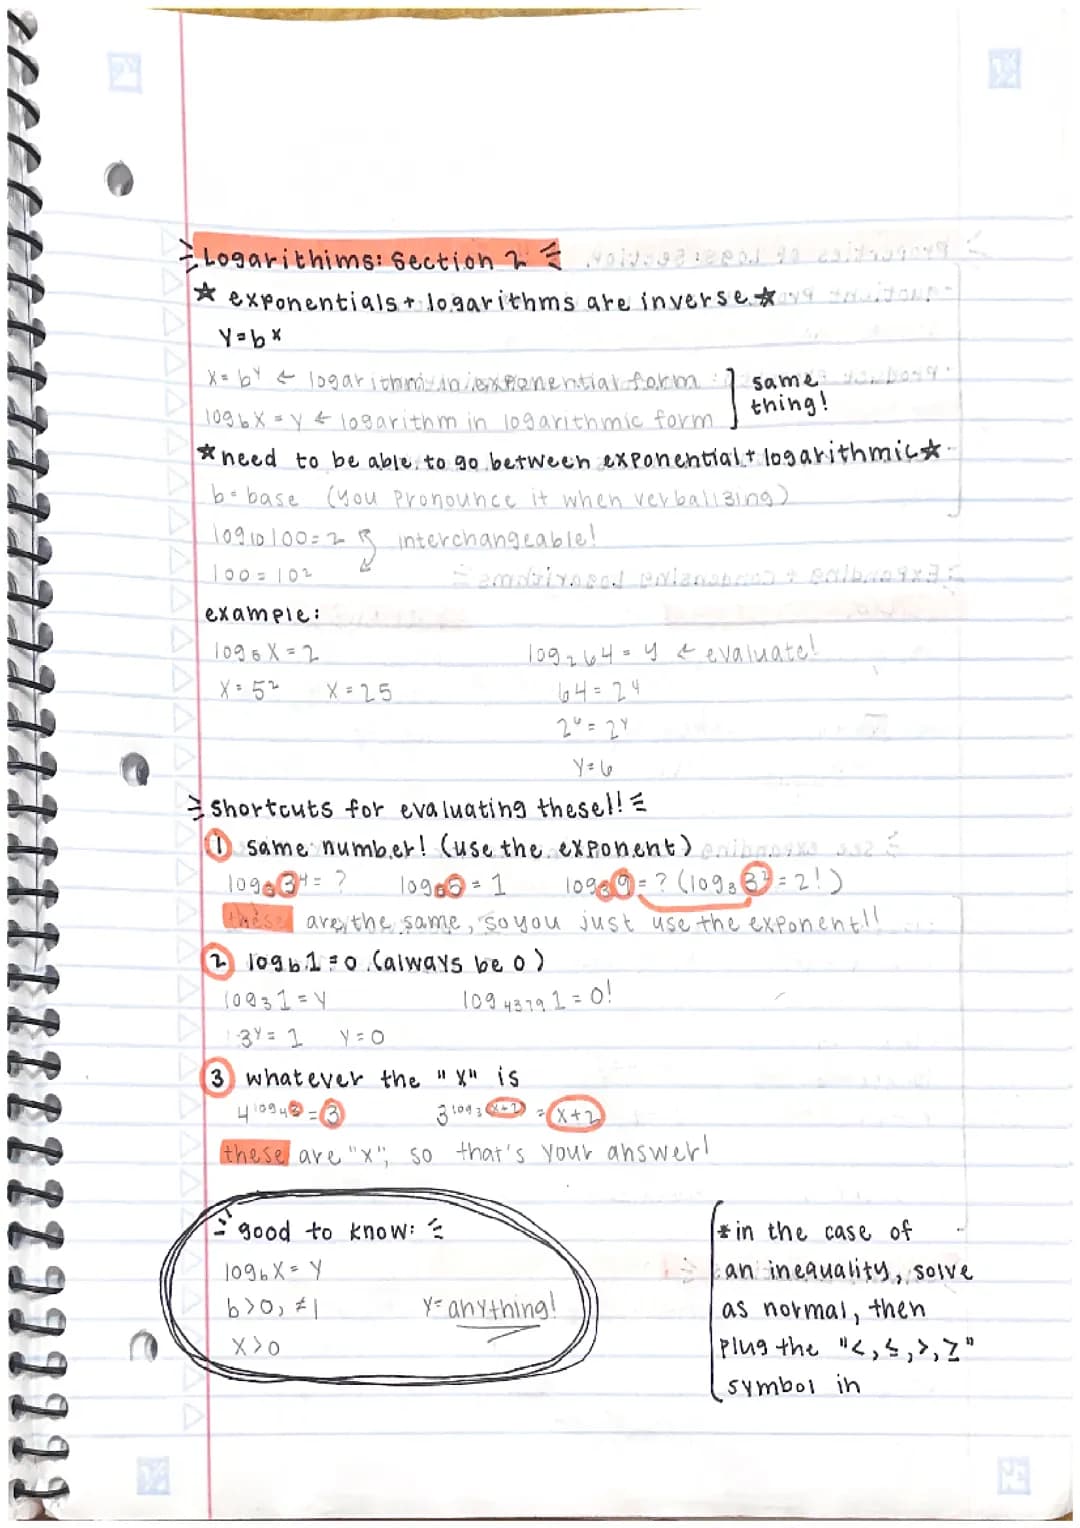 Logarithims: Section 2
★ exponentials + logarithms are inverse ★
y = bˣ
x = bʸ ← logarithm in exponential form
log_b x = y ← logarithm in logarithmic form
] same thing!
★ need to be able to go between exponential + logarithmic ★
b = base (you pronounce it when verbalizing)
log₁₀ 100 = 2
interchangeable!
100 = 10²
example:
log₅ x = 2
x = 5²   x = 25
log₂ 64 = y ← evaluate!
64 = 2ʸ
2⁶ = 2ʸ
y = 6
shortcuts for evaluating these!!
① same number! (use the exponent)
log₃ 3⁴ = ?   log₅ 5 = 1   log₃ 9 = ? (log₃ 3² = 2!)
these are the same, so you just use the exponent!!
② log_b 1 = 0 (always be 0)
log₃ 1 = y   log₄₃₇₉ 1 = 0!
3ʸ = 1   y = 0
③ whatever the "x" is
4^(log₄ 3) = 3   3^(log₃ (x+2)) = x+2
these are "x", so that's your answer!
good to know:
log_b x = y
b > 0, ≠ 1   y = anything!
x > 0
* in the case of
an inequality, solve
as normal, then
plug the "<, ≤, >, ≥"
symbol in